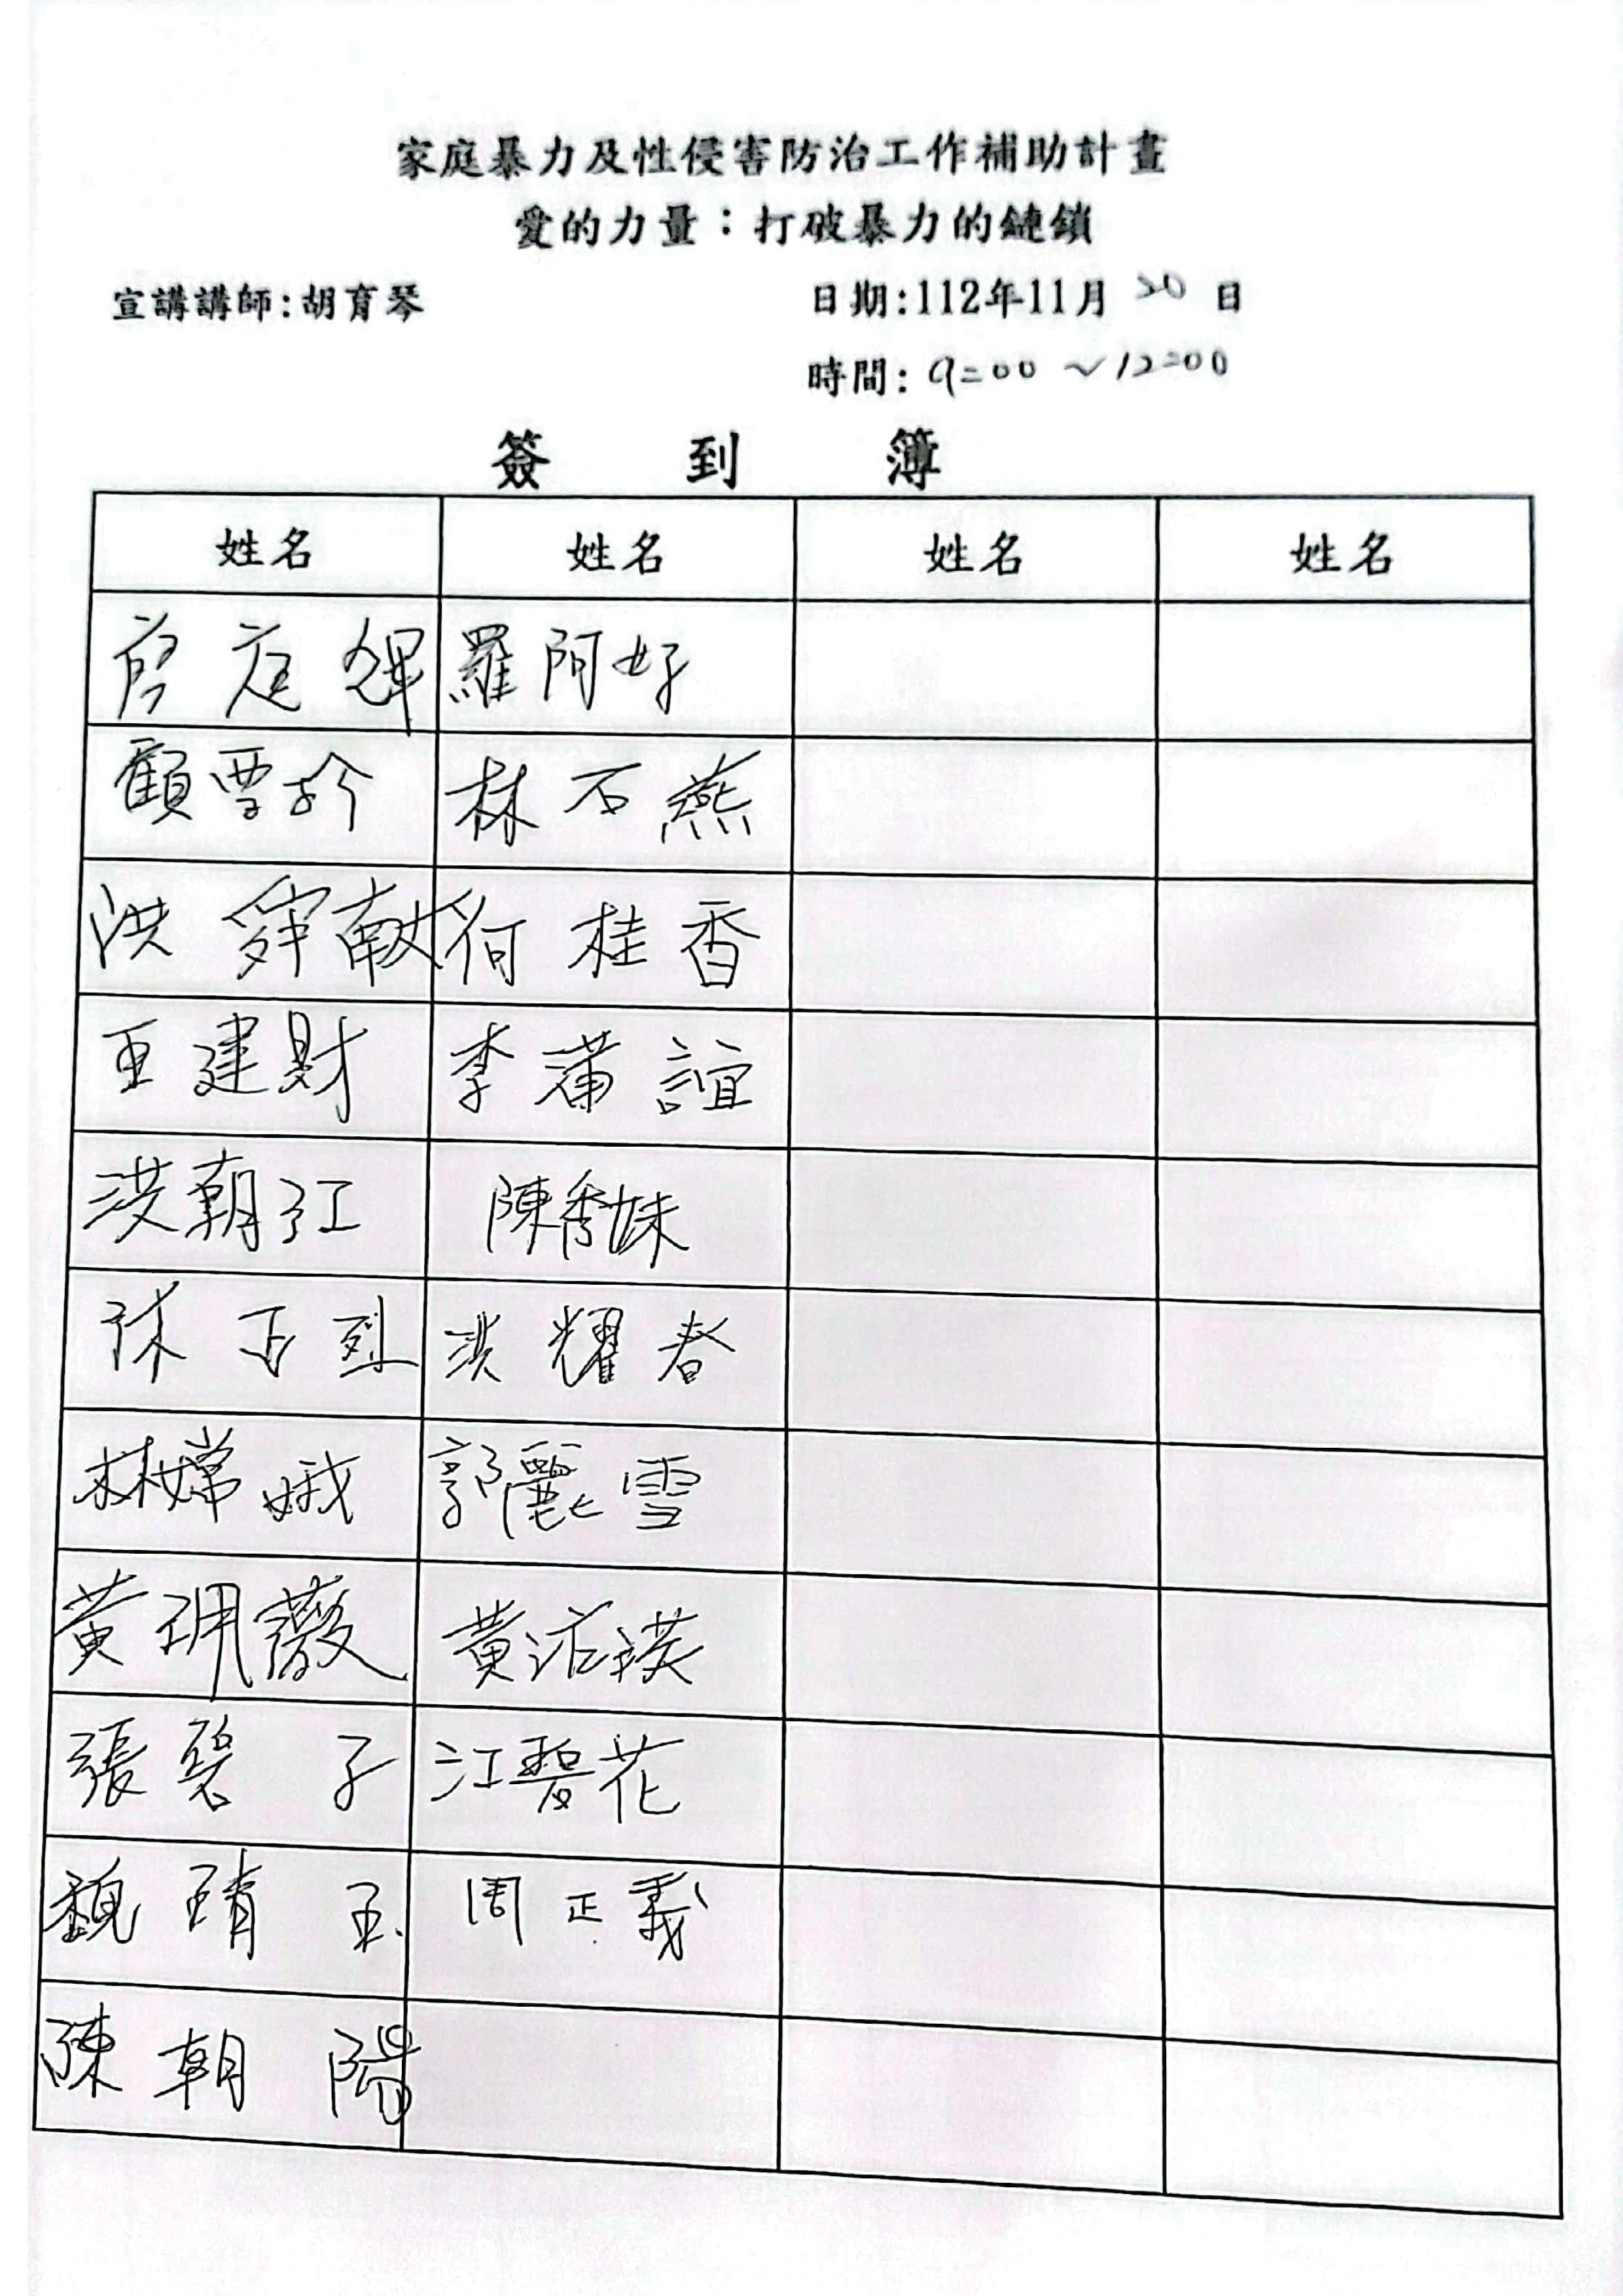 家庭暴力及性侵害防治工作補助計畫
愛的力量：打破暴力的鏈鎖
宣講講師:胡育琴 日期:112年11月20日
時間: 9:00 ~12:00
簽到簿
姓名 姓名 姓名 姓名
羅阿好
林石燕
洪 何桂香
王建財 李 誼
洪朝江 陳秀妹
正烈 洪耀春
林嫦娥 郭麗雪
黃玥薇 黃
張碧子 江碧花
魏靖玉 周正義
陳朝陽